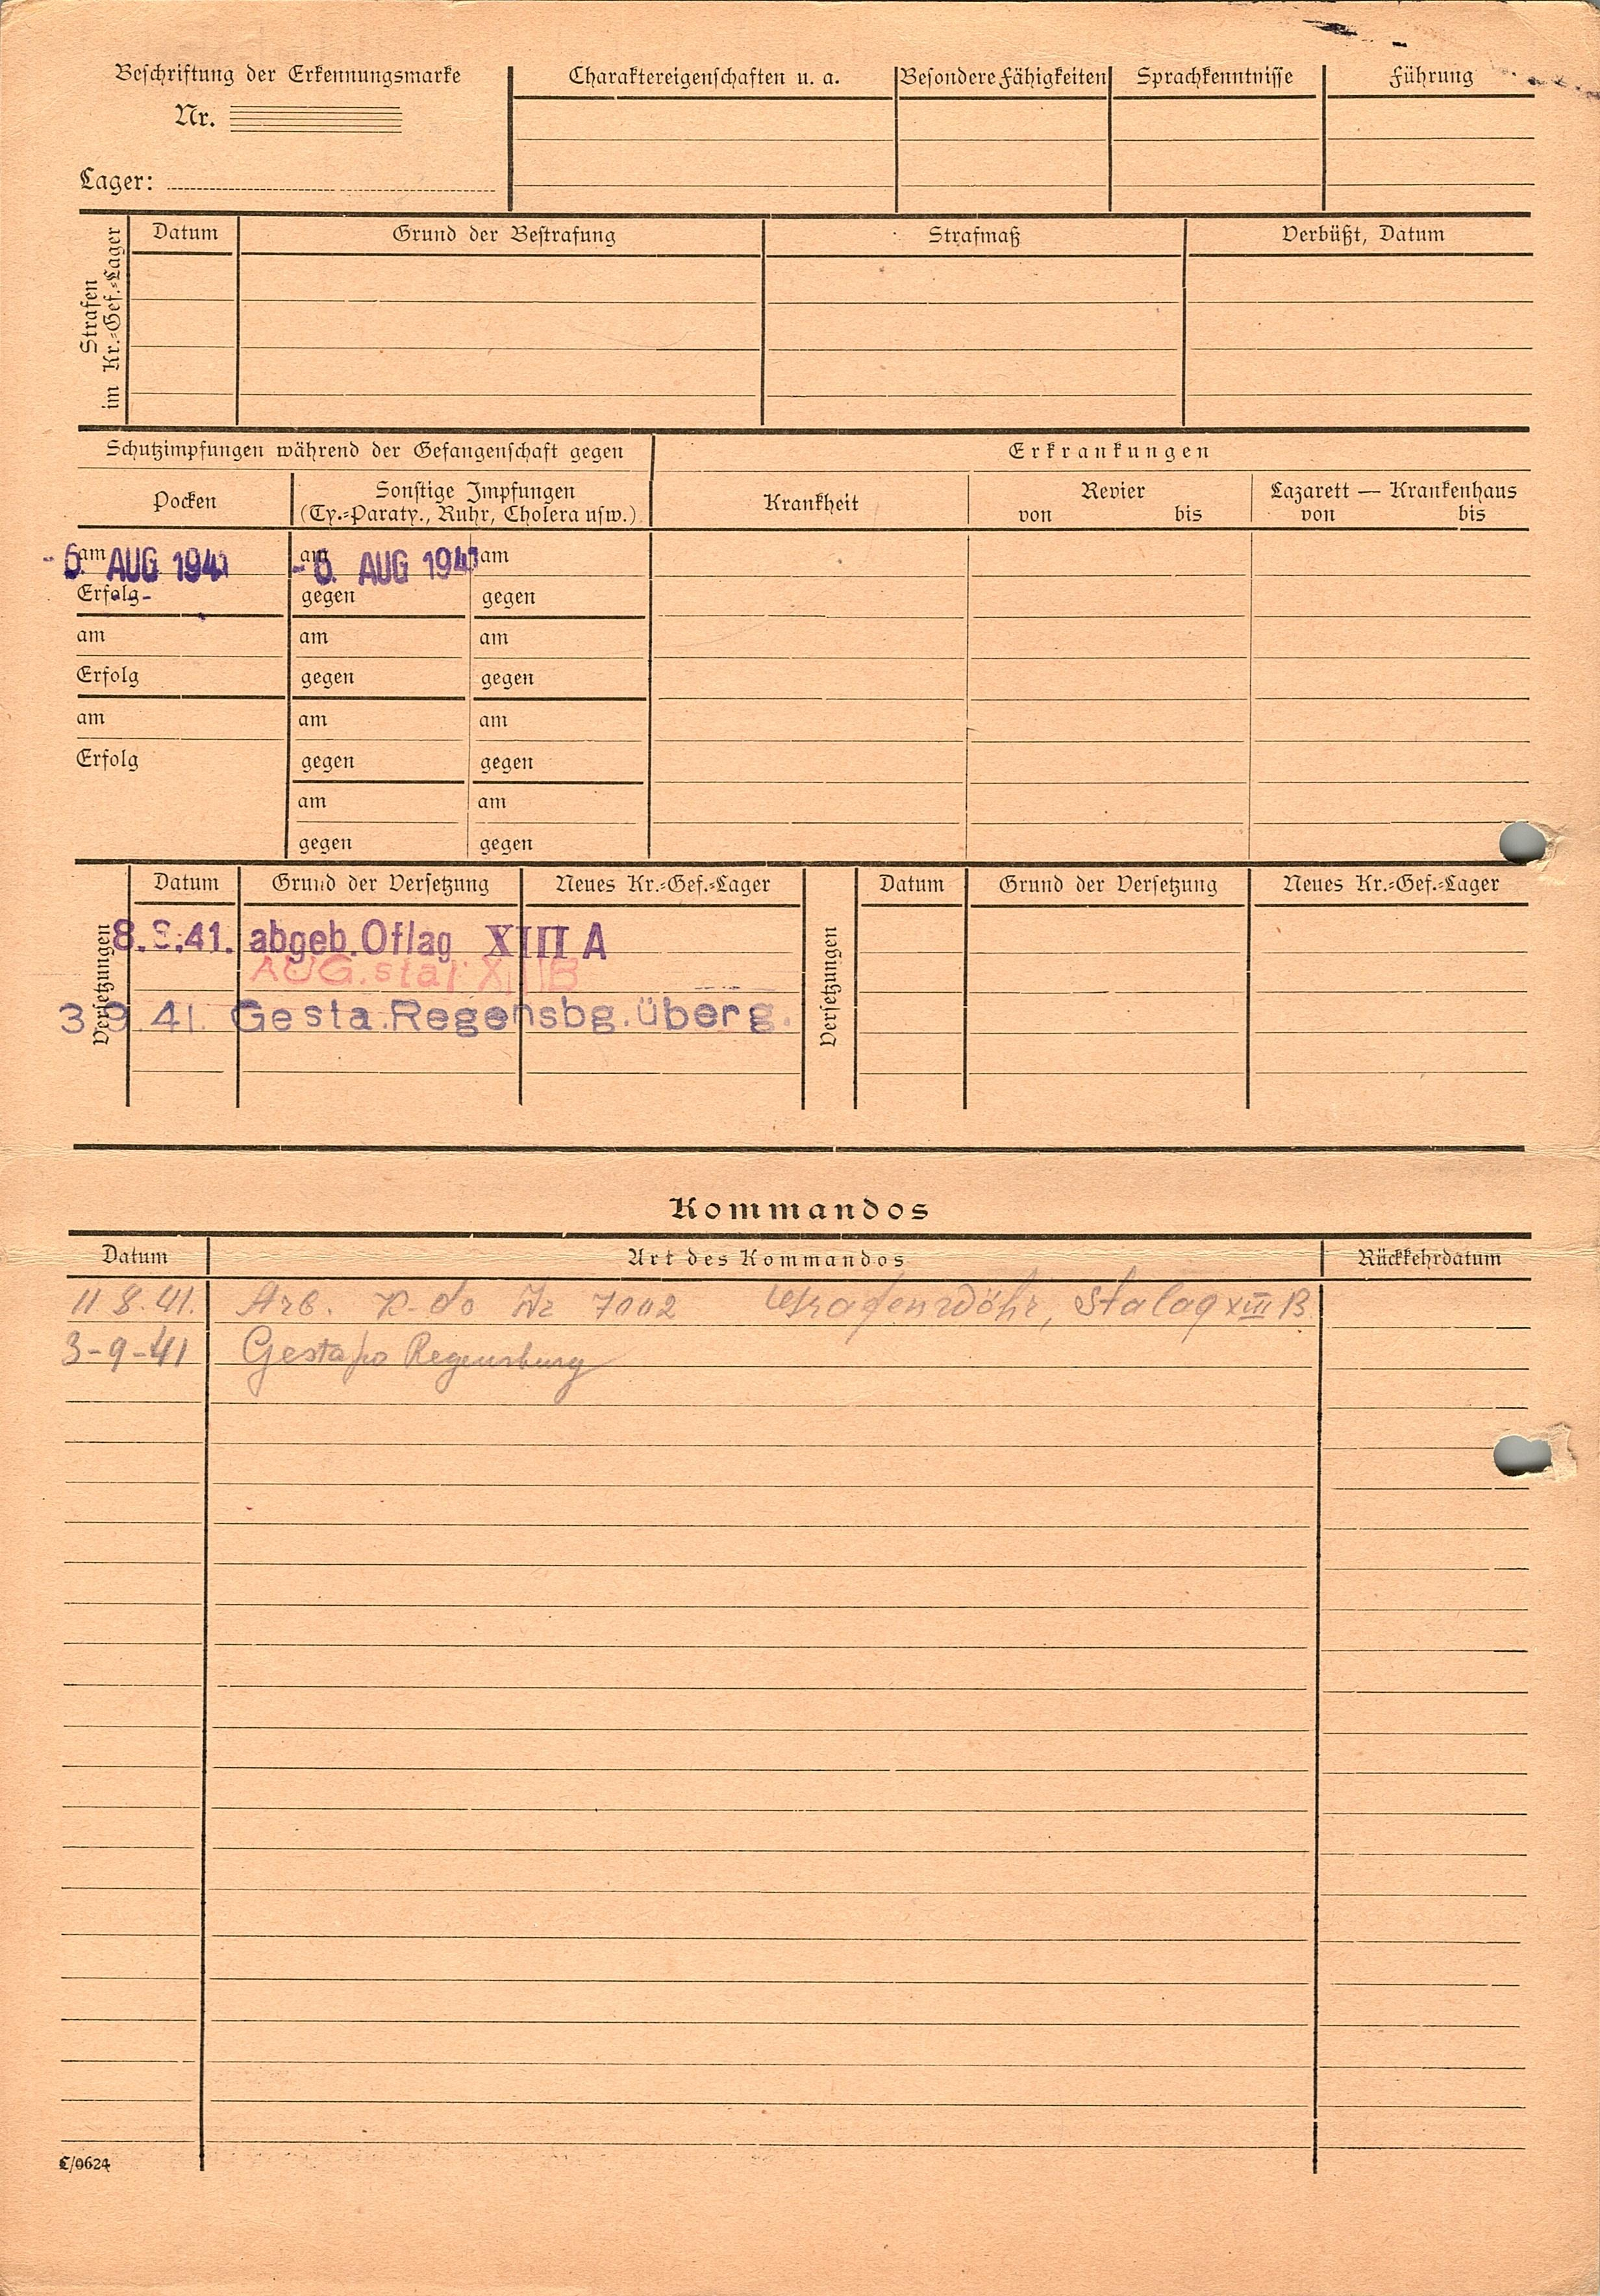 Beschriftung der Erkennungsmarke
Nr.
Lager:
Charaktereigenschaften u. a.
Besondere Fähigkeiten
Sprachkenntnisse
Führung
Strafen
im Kr.=Gef.=Lager
Datum
Grund der Bestrafung
Strafmaß
Verbüßt, Datum
Schutzimpfungen während der Gefangenschaft gegen
Erkrankungen
Pocken
Sonstige Impfungen
(Ty.=Paraty., Ruhr, Cholera usw.)
Krankheit
Revier
von bis
Lazarett — Krankenhaus
von bis
am - 6. AUG 1941 am - 6. AUG 1941 am
Erfolg gegen gegen
am am am
Erfolg gegen gegen
am am am
Erfolg gegen gegen
am am
gegen gegen
Versetzungen
Datum Grund der Versetzung Neues Kr.=Gef.=Lager
8. 8. 41. abgeb. Oflag XIII A
AUG. stal. XIII B
3 9. 41. Gesta. Regensbg. überg.
Versetzungen
Datum Grund der Versetzung Neues Kr.=Gef.=Lager
Kommandos
Datum Art des Kommandos Rückkehrdatum
11 8. 41. Arb. K-do Nr 7002 Grafenwöhr, Stalag XIII B.
3-9-41 Gestapo Regensburg
C/0624